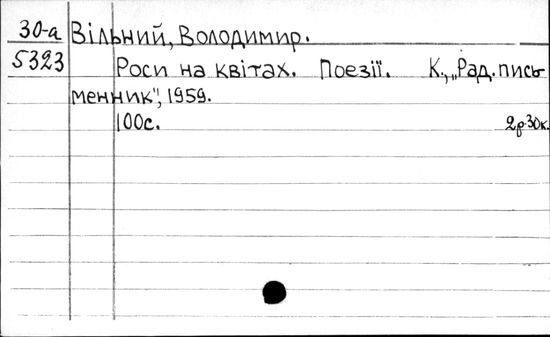 30-а Вільний, Володимир.
5323 Роси на квітах. Поезії. К., „Рад. пись
менник", 1959.
100с. 2р.30к.